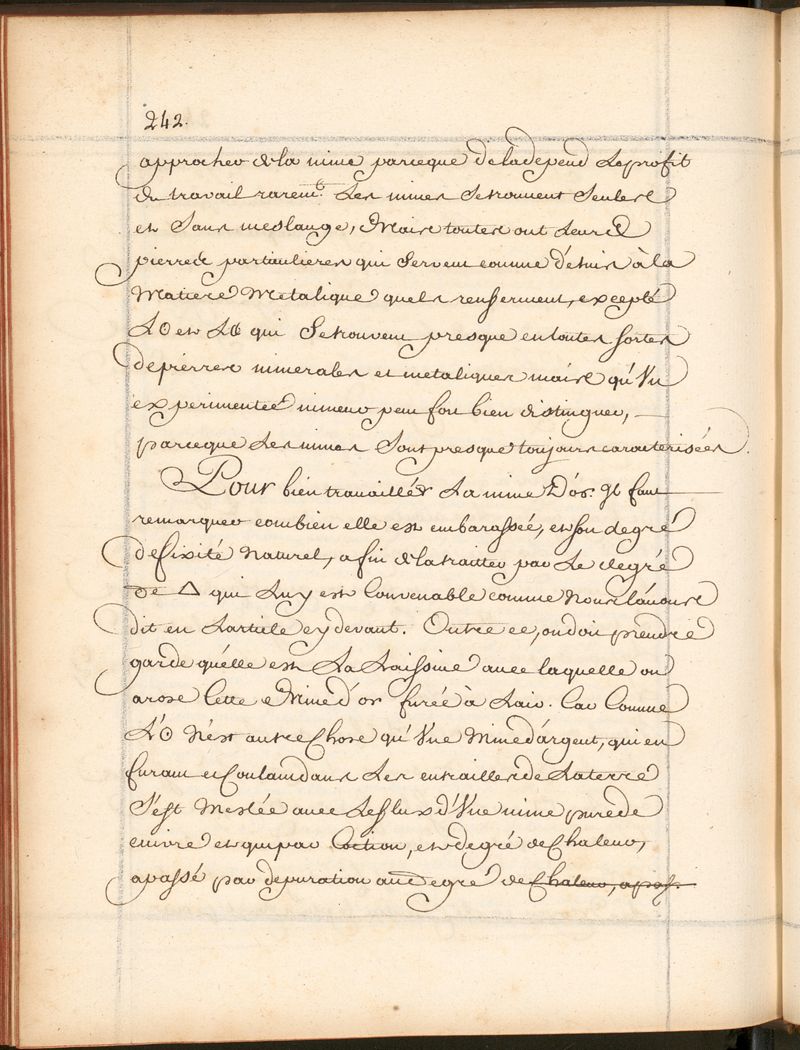 242.
approcher de la mine parceque de la depend Le profit
du travail rarem.t Les mines Se trouvent Seules
et Sans meslange, Mais toutes ont Leurs
pierres particulieres qui Servent comme d'etuis à la
Matiere Metalique quels renfferment, excepté
L'☉ et L♂ qui Se trouvent presque en toutes sortes
de pierres minerales et metaliques mais qu'Un
experimentée mineur peu fort bien distinguer,
parceque Les mines Sont presque toujours caracterisées.
Pour bien travailler La mine D'or. Il faut
remarquer combien elle est embarassée, et son degré
de fixité Naturel, afin de la traitter par Le degré
de △ qui Luy est Convenable comme Nous L'auons
dit en L'article cy devant. Outre ce, on doit prendre
garde qu'elle est La Laissive avec laquelle on
arose Cette Mine d'or furée à L'air. Car Comme
L'☉ N'est autre Chose qu'Une Mine d'argent, qui en
furant et Coulant dans Les entrailles de La terre
S'est Meslée avec Les flux d'Une mine pure de
cuivre et qui par Coction, et degré de Chaleur,
a passé par depuration au degré de Chaleur, a pas.